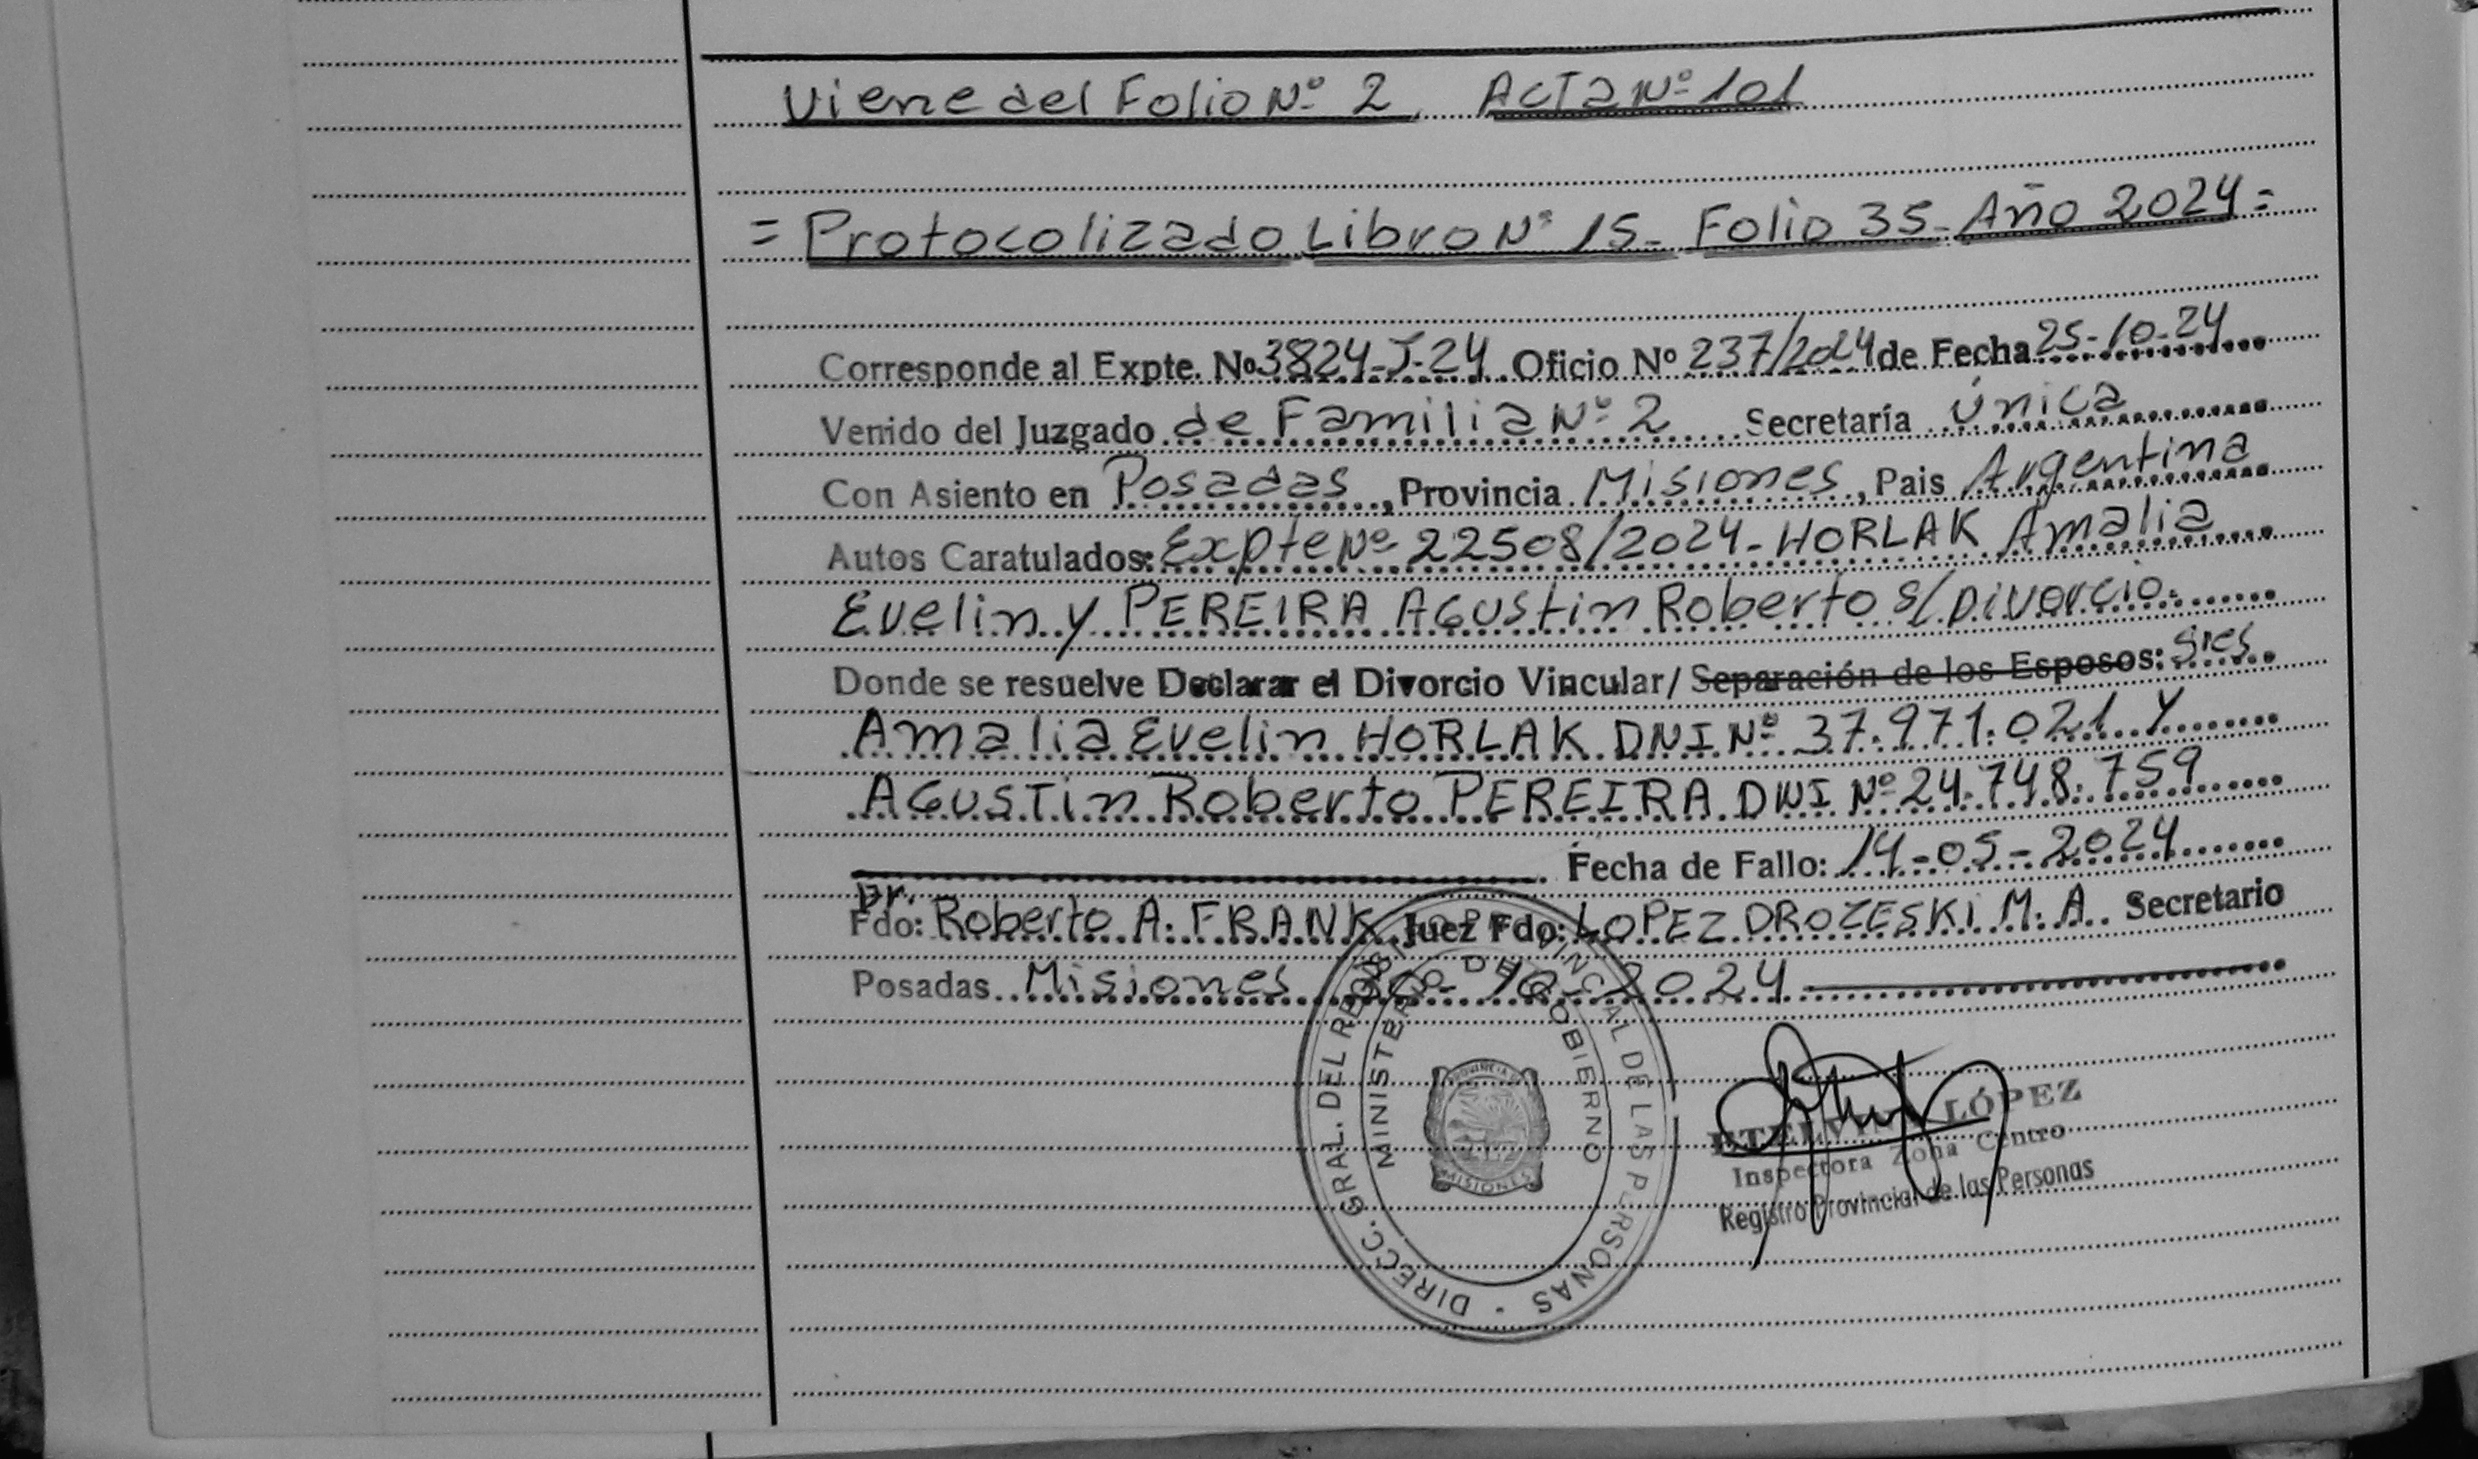 Viene del Folio Nº 2 Acta Nº 101
= Protocolizado Libro Nº 15- Folio 35- Año 2024=
Corresponde al Expte. Nº 3824-J-24 Oficio Nº 237/2024 de Fecha 25-10-24
Venido del Juzgado de Familia Nº 2 Secretaría Única
Con Asiento en Posadas, Provincia Misiones, Pais Argentina
Autos Caratulados: Expte Nº 22508/2024- HORLAK Amalia
Evelin y PEREIRA AGUStin Roberto s/ Divorcio.
Donde se resuelve Declarar el Divorcio Vincular/ Separación de los Esposos: Sres
Amalia Evelin HORLAK DNI Nº 37.971.021 Y
AGUSTin Roberto PEREIRA DNI Nº 24.748.759
Fecha de Fallo: 14-05-2024
Dr.
Fdo: Roberto A. FRANK Juez Fdo: LOPEZ DROZESKI M. A. Secretario
Posadas Misiones 10-2024
DIRECC. GRAL. DEL REGISTRO PROVINCIAL DE LAS PERSONAS -
MINISTERIO DE GOBIERNO
PROVINCIA DE
MISIONES
ETELVINA LÓPEZ
Inspectora Zona Centro
Registro Provincial de las Personas